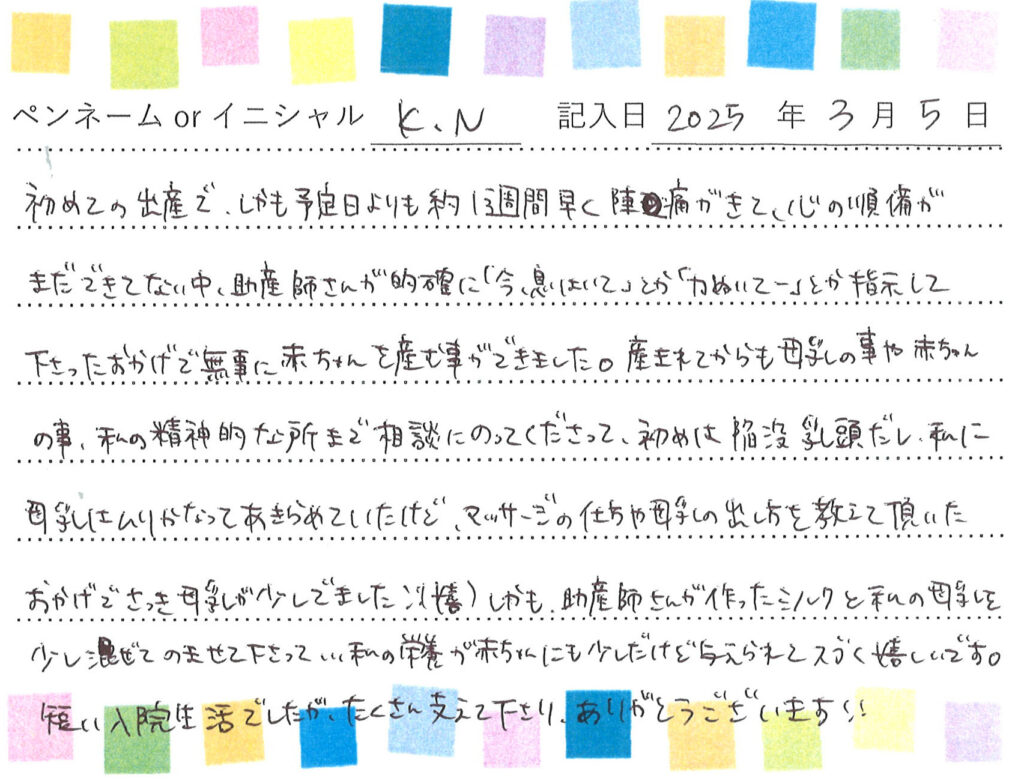 ペンネーム or イニシャル K.N 記入日 2025 年 3 月 5 日
初めての出産で、しかも予定日よりも約1週間早く陣痛がきて、心の準備が
まだできてない中、助産師さんが的確に「今、息はいて」とか「力ぬいてー」とか指示して
下さったおかげで無事に赤ちゃんを産む事ができました。産まれてからも母乳の事や赤ちゃん
の事、私の精神的な所まで相談にのってくださって、初めは陥没乳頭だし、私に
母乳はムリかなってあきらめていたけど、マッサージの仕方や母乳の出し方を教えて頂いた
おかげでさっき母乳が少しでました!!(嬉)しかも、助産師さんが作ったミルクと私の母乳を
少し混ぜてのませて下さって… 私の栄養が赤ちゃんにも少しだけど与えられてスゴく嬉しいです。
短い入院生活でしたが、たくさん支えて下さり、ありがとうございます!!